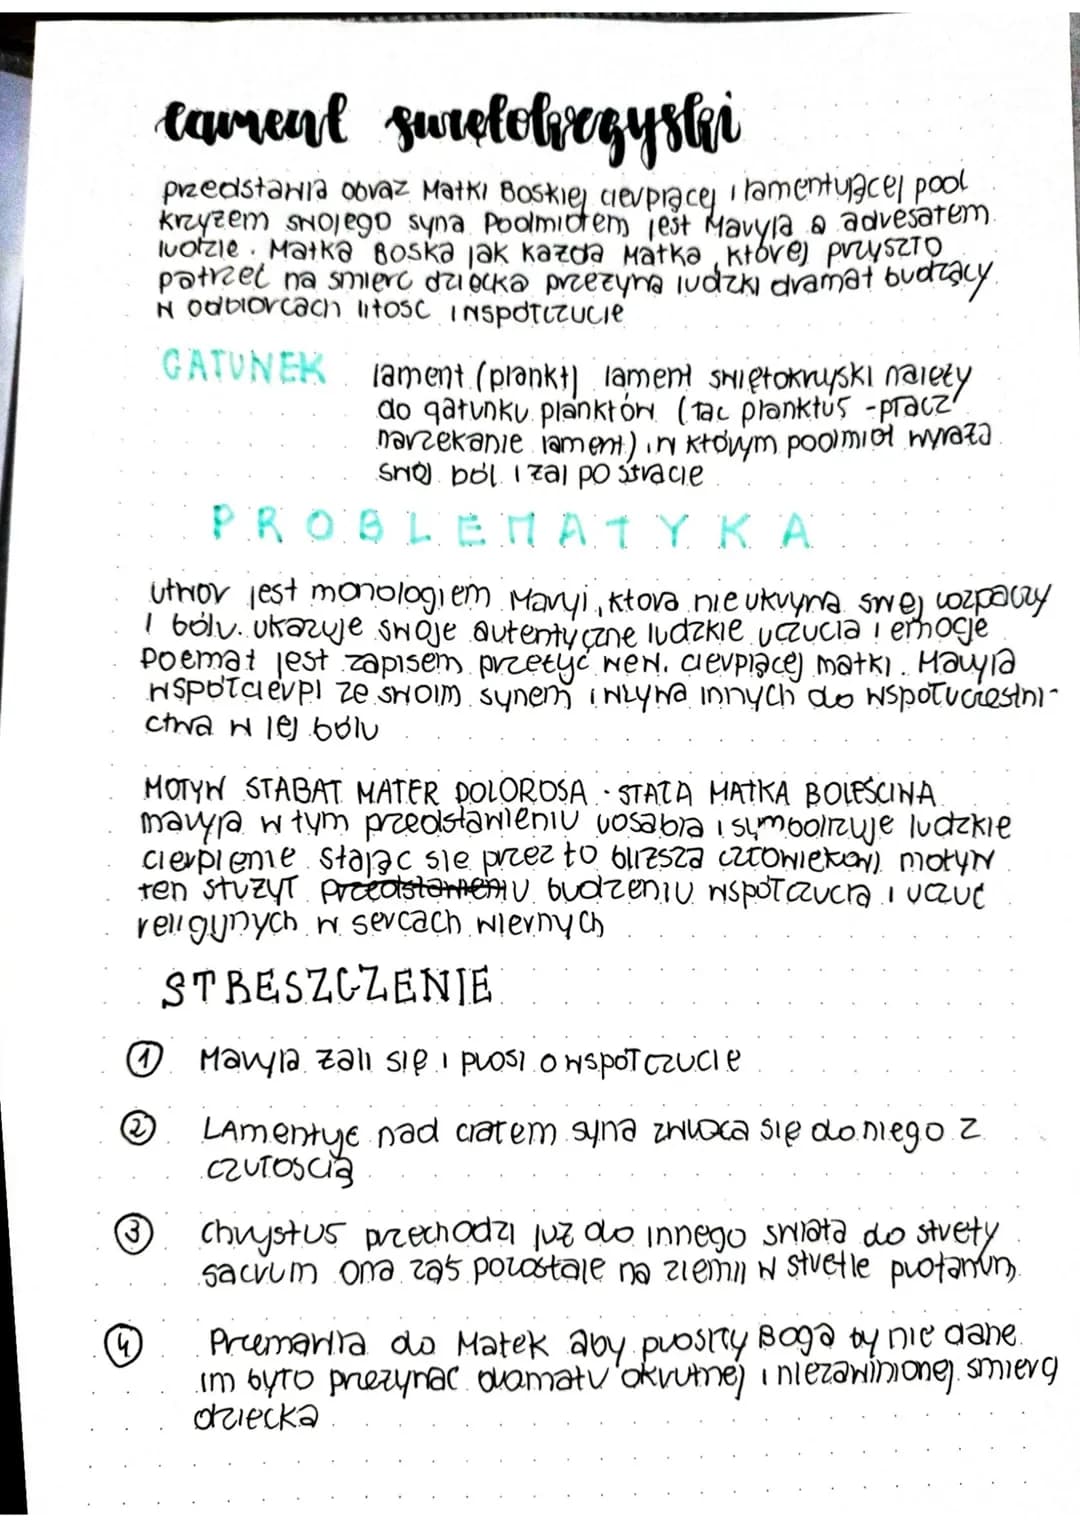 lament świętokrzyski
przedstawia obraz Matki Boskiej cierpiącej i lamentującej pod
krzyżem swojego syna Podmiotem jest Maryja a adresatem
ludzie. Matka Boska jak każda Matka, której przyszło
patrzeć na smierc dziecka przeżywa ludzki dramat budzący
w odbiorcach litosc i współczucie
GATUNEK lament (plankt) lament świętokrzyski należy
do gatunku planktów (łac planktus - płacz
narzekanie lament) w którym podmiot wyraża
swój ból i żal po stracie
PROBLEMATYKA
utwor jest monologiem Maryi, ktora nie ukrywa swej rozpaczy
i bólu. ukazuje swoje autentyczne ludzkie uczucia i emocje
Poemat jest zapisem przeżyć wew. cierpiącej matki. Maryja
współcierpi ze swoim synem i wzywa innych do współuczestni-
ctwa w jej bólu
MOTYW STABAT MATER DOLOROSA - STAŁA MATKA BOLEŚCIWA
maryja w tym przedstawieniu uosabia i symbolizuje ludzkie
cierpienie stając sie przez to bliższa człowiekowi motyw
ten służył przedstawieniu budzeniu współczucia i uczuć
religijnych w sercach wiernych
STRESZCZENIE
① Maryja żali się i prosi o współczucie
② LAmentuje nad ciałem syna zwraca się do niego z
czułoscią
③ Chrystus przechodzi już do innego swiata do strefy
sacrum ona zaś pozostaje na ziemi w strefie profanum
④ Przemawia do Matek aby prosiły Boga by nie dane
im było przeżywać dramatu okrutnej i niezawinionej smierci
dziecka